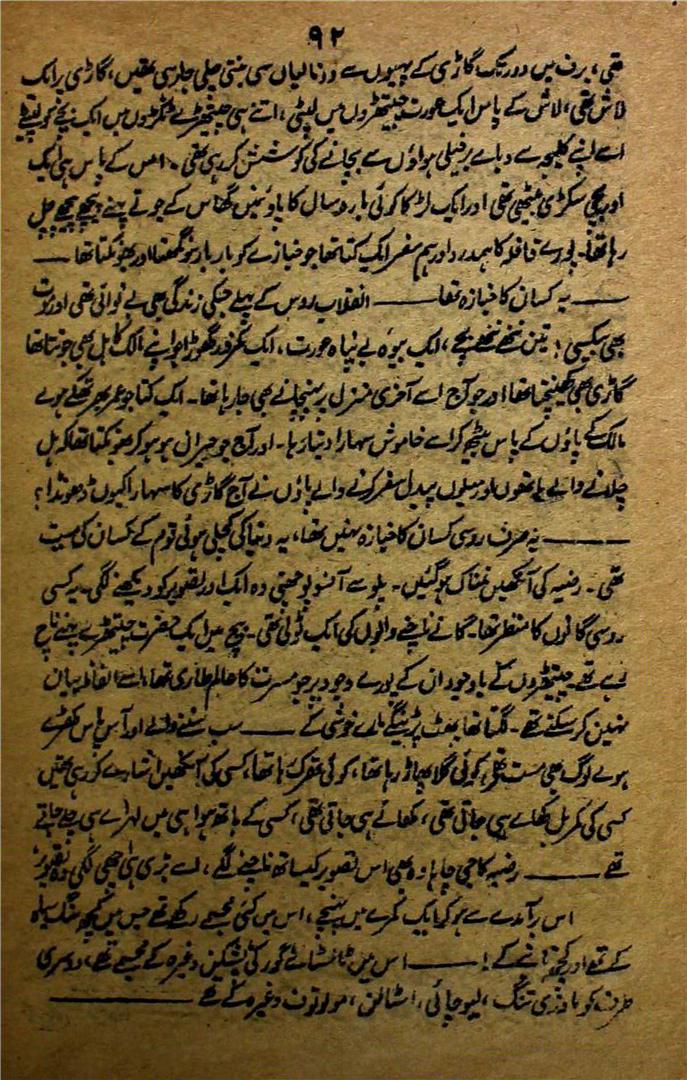 ۹۲
تھی، برف میں دور تک گاڑی کے پہیوں سے دو نالیاں سی بنتی چلی جا رہی تھیں، گاڑی پر ایک
لاش تھی، لاش کے پاس ایک عورت چیتھڑوں میں لپٹی، اتنے ہی چیتھڑے ٹکڑوں میں ایک بچے کو لپیٹے
اسے اپنے کلیجے سے دبائے برفیلی ہواؤں سے بچانے کی کوشش کر رہی تھی۔ اس کے پاس ہی ایک
اور بچی سکڑی بیٹھی تھی اور ایک لڑکا کوئی بارہ سال کا پاؤں میں گھاس کے جوتے پہنے پیچھے پیچھے چل
رہا تھا۔ پورے قافلہ کا ہمدرد اور ہم سفر ایک کتا تھا جو جنازے کو بار بار سونگھتا اور بھونکتا تھا ——
—— یہ کسان کا جنازہ تھا —— انقلاب روس کے پہلے جبکی زندگی بھی بے نوائی تھی اور موت
بھی بیکسی! تین ننھے ننھے بچے، ایک بیوہ بے پناہ عورت، ایک کمزور گھوڑا جو اپنے مالک کا ہل بھی جوتتا تھا
گاڑی بھی کھینچتا تھا اور جو آج اسے آخری منزل پر پہنچانے بھی جا رہا تھا۔ ایک کتا جو عمر بھر تھکے ہوئے
مالک کے پاؤں کے پاس بیٹھ کر اسے خاموش سہارا دیتا رہا۔ اور آج جو حیران ہو ہو کر بھونکتا تھا کہ ہل
چلانے والے ہاتھوں اور میلوں پیدل سفر کرنے والے پاؤں نے آج گاڑی کا سہارا کیوں ڈھونڈا؟
—— یہ صرف روسی کسان کا جنازہ نہیں تھا، یہ دنیا کی کچلی ہوئی قوم کے کسان کی میت
تھی۔ رضیہ کی آنکھیں نمناک ہو گئیں۔ پلو سے آنسو پونچھتی وہ ایک اور تصویر کو دیکھنے لگی۔ یہ کسی
روسی گاؤں کا منظر تھا۔ گانے ناچنے والوں کی ایک ٹولی تھی۔ بیچ میں ایک حضرت چیتھڑے پہنے ناچ
رہے تھے۔ چیتھڑوں کے باوجود ان کے پورے وجود پر جو مسرت کا عالم طاری تھا، اسے الفاظ بیان
نہیں کر سکتے تھے۔ لگتا تھا پھٹ پڑینگے مارے خوشی کے —— سب سننے والے اور آس پاس کھڑے
ہوئے لوگ بھی مست تھے، کوئی گلا پھاڑ رہا تھا، کوئی تھرک رہا تھا، کسی کی آنکھیں اشارے کر رہی تھیں
کسی کی کمر بل کھائے ہی جاتی تھی، کھائے ہی جاتی تھی، کسی کے ہاتھ ہوا ہی میں لہرائے ہی چلے جاتے
تھے —— رضیہ کا جی چاہا وہ بھی اس تصویر کیساتھ ناچنے لگے، اسے بڑی ہی اچھی لگی وہ تصویر!
اس برآمدے سے ہو کر ایک کمرے میں پہنچے، اس میں کئی مجسمے رکھے تھے جس میں کچھ سنگ سیاہ
کے تھے اور کچھ تانبے کے! —— اس میں ٹالسٹائے گورکی پشکین وغیرہ کے مجسمے تھے، دوسری
طرف کو ماؤزی تنگ، لیو چائی، اسٹالن، مولوتوف وغیرہ کے تھے ——